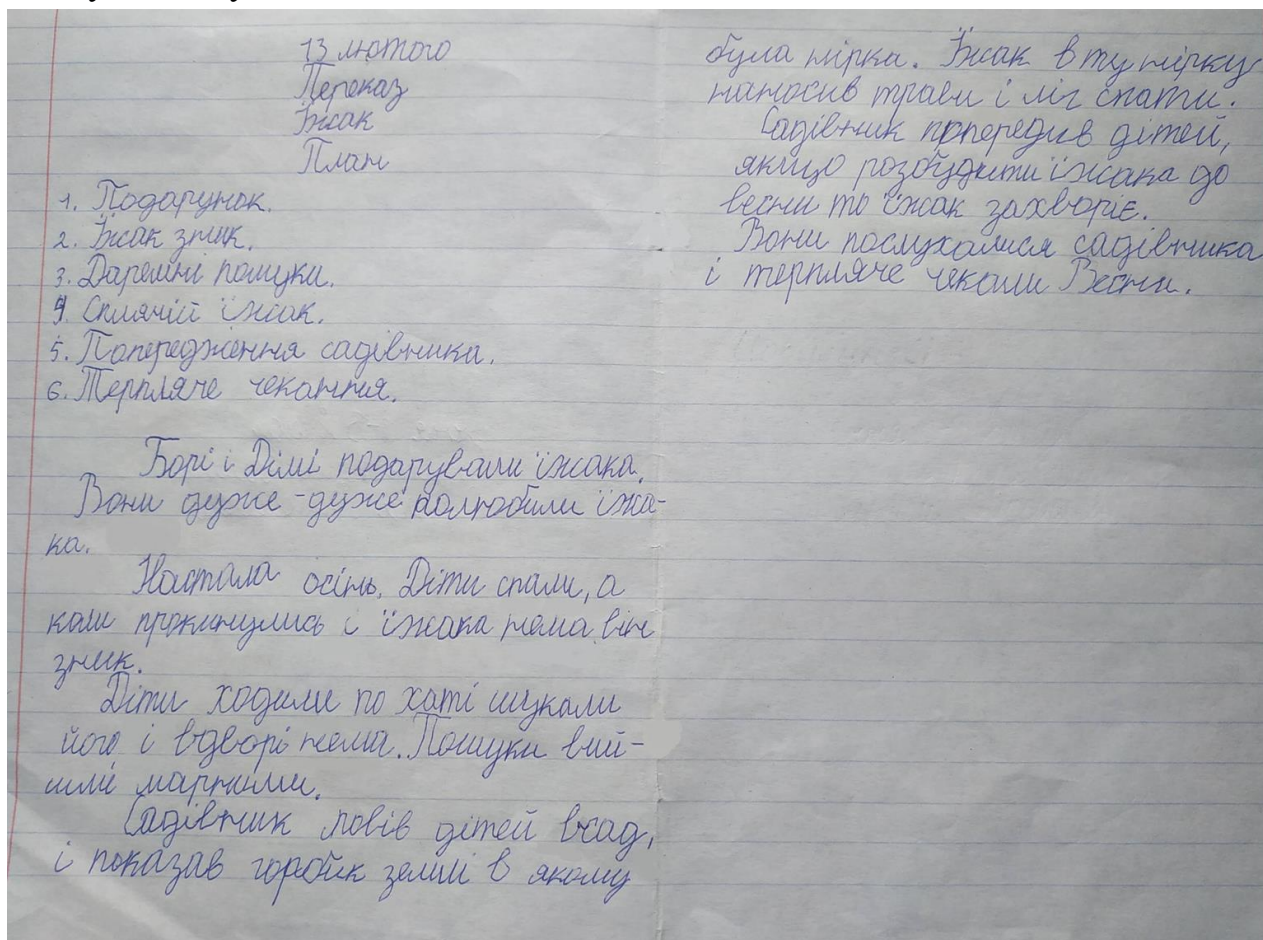 13 лютого
Переказ
Їжак
План
1. Подарунок.
2. Їжак зник.
3. Даремні пошуки.
4. Сплячій їжак.
5. Попередження садівника.
6. Терпляче чекання.
Борі і Дімі подарували їжака.
Вони дуже-дуже полюбили їжа-
ка.
Настала осінь. Діти спали, а
коли прокинулись і їжака нема він
зник.
Діти ходили по хаті шукали
його і вдворі нема. Пошуки вий-
шлі марними.
Садівник повів дітей всад,
і показав горбик землі в якому
була нірка. Їжак в ту нірку
наносив трави і ліг спати.
Садівник попередив дітей,
якщо розбудити їжака до
весни то їжак захворіє.
Вони послухалися садівника
і терпляче чекали Весни.